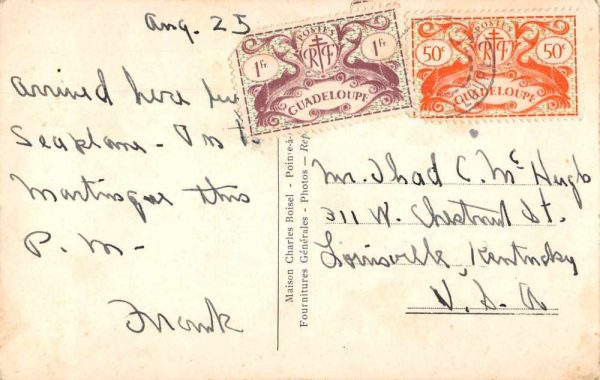 Aug. 25
arrived here by
Seaplane -
Martinique this
P. M -
Frank
POSTES
1 Fr. RF 1 Fr.
GUADELOUPE
POSTES
50c RF 50c
GUADELOUPE
Maison Charles Boisel - Pointe-à-
Fournitures Générales - Photos - Rep
Mr. Thad C. McHugh
311 W. Chestnut St.
Louisville, Kentucky
U. S. A